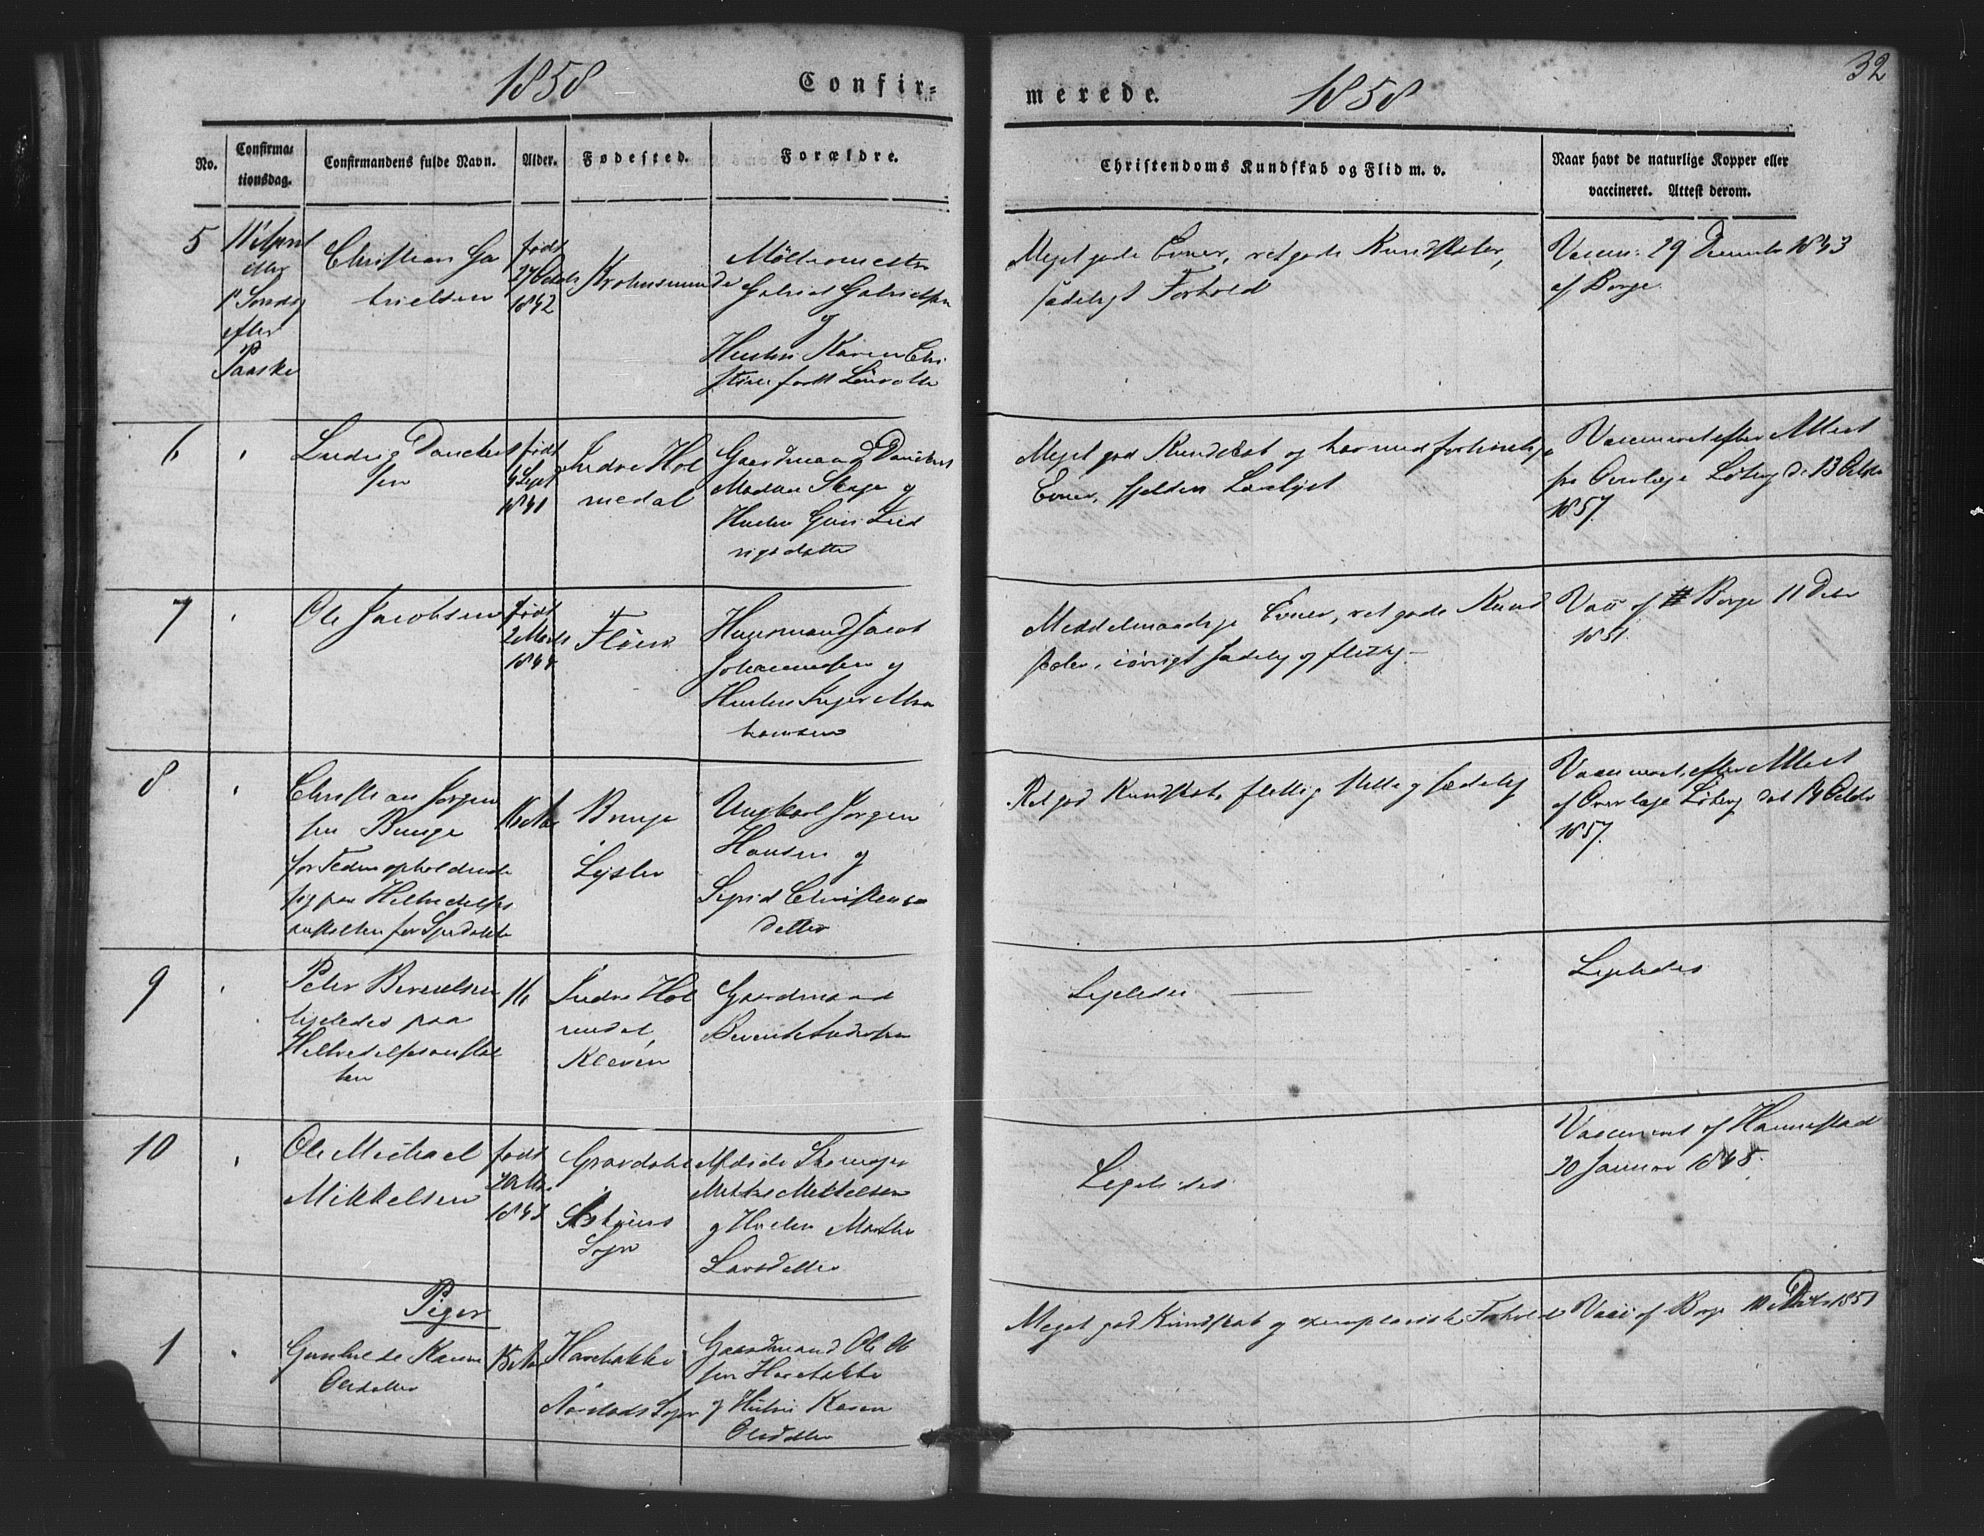 1858 Confir=
merede. 1858 32
No. Confirma= tionsdag. Confirmandens fulde Navn. Alder. Fødested. Forældre.
Christendoms Kundskab og Flid m. v. Naar havt de naturlige Kopper eller vaccineret. Attest derom.
5
11 April
1ste Søndag
efter
Paaske
Christian Ga
brielsen
født
27 Octob
1842
Gabriel Gabrielsen
og
Hustru Karen Chri
stine født
Meget gode Evner, ret gode Kundskaber,
sædeligt Forhold
Vaccin: 29 December 1843
af Borge.
6
Ludvig Danchert
sen
født
Sept
1841
Indre Hol
medal
Gaardmand Danchert
og
Hustru Guri Lud
vigsdatter
Meget god Kundskab og har
Evner, sjelden Lærelyst
Vaccineret efter Attest
fra Overlæge Løberg d: 13 Octbr
1857.
7
Ole Jacobsen
født
2 Marts
Huusmand Jacob
Johannesen og
Hustru Inger
Meddelmaadige Evner, ret gode Kund
skaber, iøvrigt sædelig og flittig
Vacc af Borge 11 Octbr
1851.
8
Christian Jørgen
sen Bunge
for Tiden opholdende
sig paa Helbredelses
anstalten for Spedalske
16 Aar
Bunge
Lyster
Ungkarl Jørgen
Hansen og
Sigrid Christens
datter
Ret god Kundskab, flittig stille og sædelig
Vaccineret efter Attest
af Overlæge Løberg det 14 Octbr
1857.
9
Peter Berentsen
ligeledes paa
Helbredelsesanstal
ten
16
Indre Hol
medal,
Kleven
Gaardmand
Berent Andersen
Ligeledes
Ligeledes
10
Ole Michael
Mikkelsen
født
Askøens
Sogn
Mikkelsen
og Hustru Marthe
Larsdatter
Ligeledes
Vaccineret af Hannestad
20 Januar 1845.
Piger
1
Gunhilde Karine
Olsdatter
15 Aar
Haretakke
Aarstads Sogn
Gaardmand Ole Ol
sen Haretakke
og Hustru Karen
Olsdatter
Meget god Kundskab og exemplarisk Forhold
Vacc af Borge 11 Octbr 1851